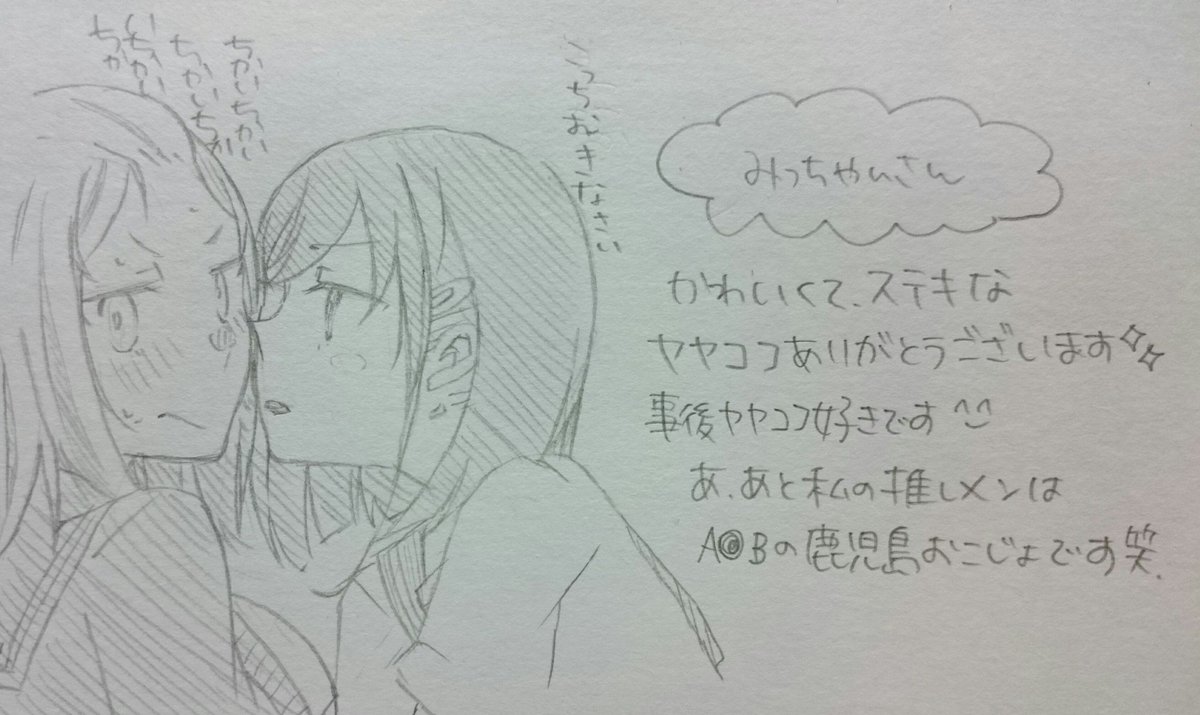 ちかいちかい
ちかいちか
いちかい
ちか
こっちむきなさい
みっちゃんさん
かわいくて、ステキな
ヤヤココありがとうございます
事後ヤヤココ好きです^^
あ、あと私の推しメンは
A@Bの鹿児島おこじょです笑.